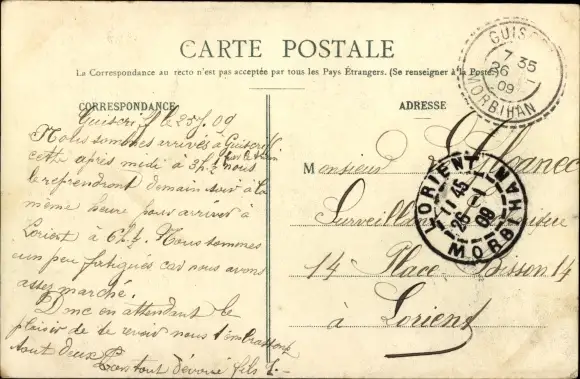 CARTE POSTALE
La Correspondance au recto n'est pas acceptée par tous les Pays Étrangers. (Se renseigner à la Poste)
CORRESPONDANCE
Guiscriff le 25/ 09
Nous sommes arrivés à Guiscriff
cette après midi à 3h ½ par le train nous
le reprendront demain soir à la
même heure pour arriver à
Lorient à 6h ½. Nous sommes
un peu fatigués car nous avons
assez marché.
Donc en attendant le
plaisir de te revoir nous t'embrassons
tout deux
ton tout dévoué fils
ADRESSE
Monsieur
Surveillant
14 Place Bisson 14
à Lorient
GUIS
7 35
26
09
MORBIHAN
LORIENT
11 45
26
09
MORBIHAN